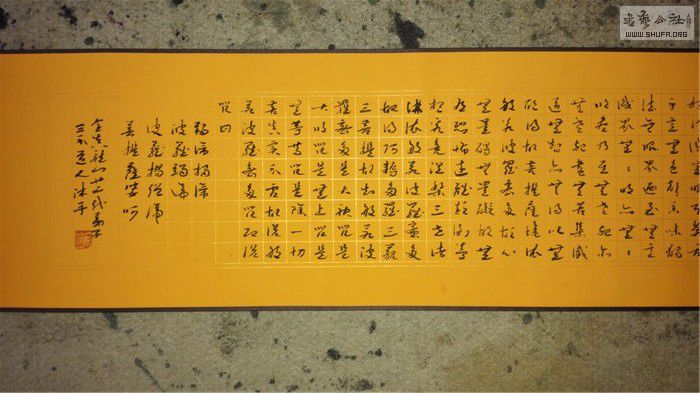 書藝公社
WWW.SHUFA.ORG
無色聲香味觸
法無眼界乃至無意
識界無無明亦無無
明盡乃至無老死亦
無老死盡無苦集滅
道無智亦無得以無
所得故菩提薩埵依
般若波羅蜜多故心
無罣礙無罣礙故無
有恐怖遠離顛倒夢
想究竟涅槃三世諸
佛依般若波羅蜜多
故得阿耨多羅三藐
三菩提故知般若波
羅蜜多是大神咒是
大明咒是無上咒是
無等等咒能除一切
苦真實不虛故說般
若波羅蜜多咒即說
咒曰
揭諦揭諦
波羅揭諦
波羅僧揭諦
菩提薩婆訶
全真龍門代弟子
道人